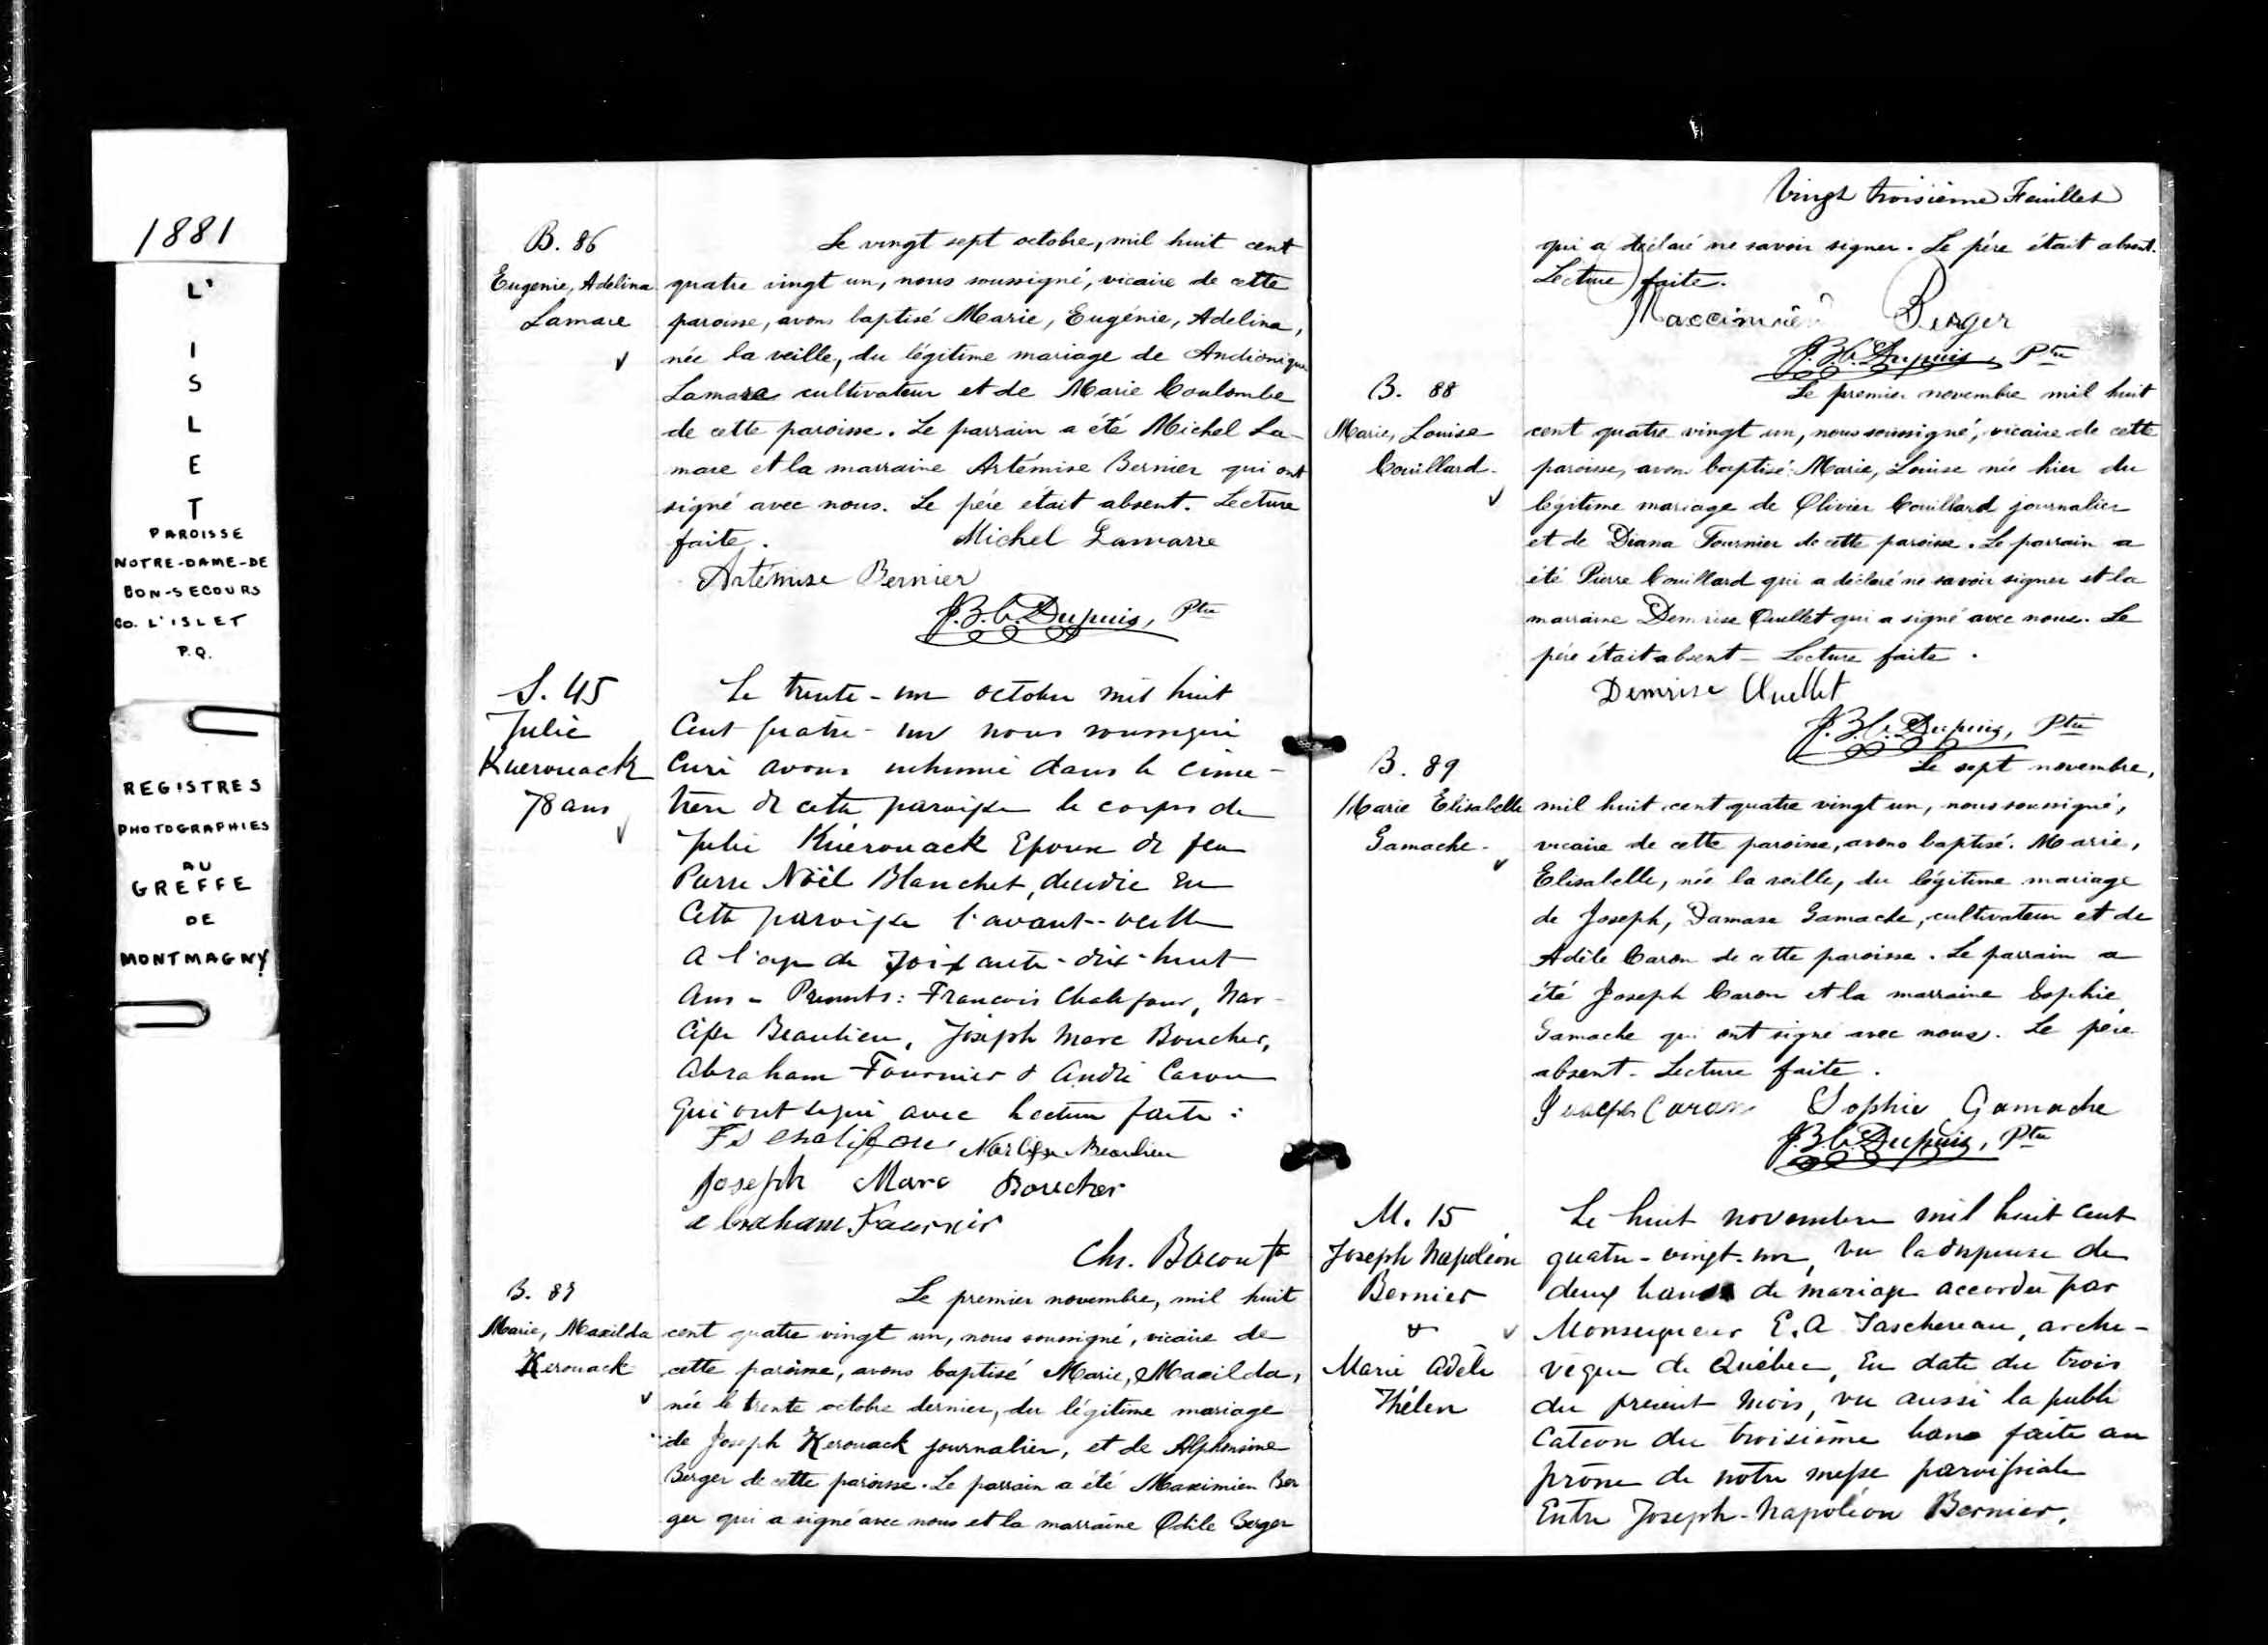 1881
L'
I
S
L
E
T
PAROISSE
NOTRE-DAME-DE
BON-SECOURS
CO. L'ISLET
P.Q.
REGISTRES
PHOTOGRAPHIES
AU
GREFFE
DE
MONTMAGNY
B. 86
Eugenie, Adelina
Lamare
Le vingt sept octobre, mil huit cent
quatre vingt un, nous soussigné, vicaire de cette
paroisse, avons baptisé Marie, Eugénie, Adelina,
née la veille, du légitime mariage de Andronique
Lamare cultivateur et de Marie Coulombe
de cette paroisse. Le parrain a été Michel La-
mare et la marraine Artémise Bernier qui ont
signé avec nous. Le père était absent. Lecture
faite. Michel Lamarre
Artémise Bernier
J.B.C. Dupuis, Ptre
S. 45
Julie
Kuerouack
78 ans
Le trente-un octobre mil huit
Cent quatre-un nous soussigné
Curé avons inhumé dans le cime-
tière de cette paroisse le corps de
Julie Kuérouack Epouse de feu
Pierre Noël Blanchet, décédée En
Cette paroisse l'avant-veille
a l'age de soixante-dix-huit
Ans - Présents: François Chalifour, Nar-
cisse Beaulieu, Joseph Marc Boucher,
Abraham Fournier & André Caron
qui ont signé avec lecture faite:
Fs chalifour Narcisse Beaulieu
Joseph Marc Boucher
abraham Fournier
Chs. Bacon Ptre
B. 87
Marie, Maxilda
Kerouack
Le premier novembre, mil huit
cent quatre vingt un, nous soussigné, vicaire de
cette paroisse, avons baptisé Marie, Maxilda,
née le trente octobre dernier, du légitime mariage
de Joseph Kerouack journalier, et de Alphonsine
Berger de cette paroisse. Le parrain a été Maximien Ber
ger qui a signé avec nous et la marraine Odile Berger
Vingt troisième Feuillet
qui a déclaré ne savoir signer. Le père était absent.
Lecture faite.
Maccimien Berger
J.B.C. Dupuis, Ptre
B. 88
Marie, Louise
Couillard.
Le premier novembre mil huit
cent quatre vingt un, nous soussigné, vicaire de cette
paroisse, avons baptisé Marie, Louise née hier du
légitime mariage de Olivier Couillard journalier
et de Diana Fournier de cette paroisse. Le parrain a
été Pierre Couillard qui a déclaré ne savoir signer et la
marraine Demrise Ouellet qui a signé avec nous. Le
père était absent - Lecture faite.
Demrise Ouellet
J.B.C. Dupuis, Ptre
B. 89
Marie Elisabelle
Gamache.
Le sept novembre,
mil huit cent quatre vingt un, nous soussigné,
vicaire de cette paroisse, avons baptisé. Marie,
Elisabelle, née la veille, du légitime mariage
de Joseph, Damase Gamache, cultivateur et de
Adèle Caron de cette paroisse. Le parrain a
été Joseph Caron et la marraine Sophie
Gamache qui ont signé avec nous. Le père
absent - Lecture faite.
Joseph Caron Sophie Gamache
J.B.C. Dupuis, Ptre
M. 15
Joseph Napoléon
Bernier
&
Marie Adèle
Thélen
Le huit novembre mil huit cent
quatre-vingt-un, vu la dispense de
deux bans de mariage accordée par
Monseigneur E.A Taschereau, arche-
vèque de Québec, En date du trois
du présent mois, vu aussi la publi
cation du troisième banc faite au
prône de notre messe paroissiale
Entre Joseph-Napoléon Bernier,